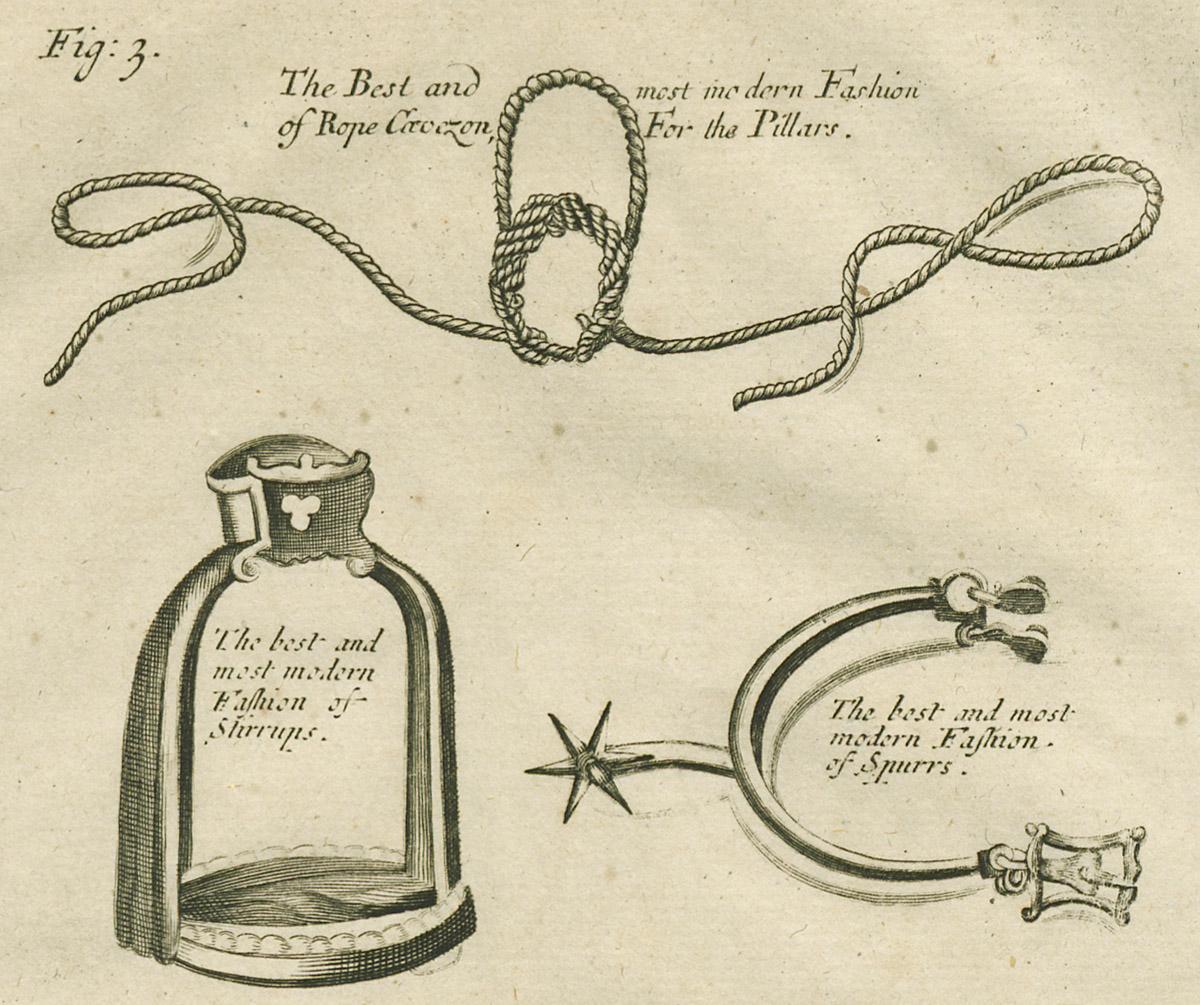 Fig: 3.
The Best and most modern Fashion
of Rope Cavezon, For the Pillars.
The best and
most modern
Fashion of
Stirrups.
The best and most
modern Fashion.
of Spurrs.